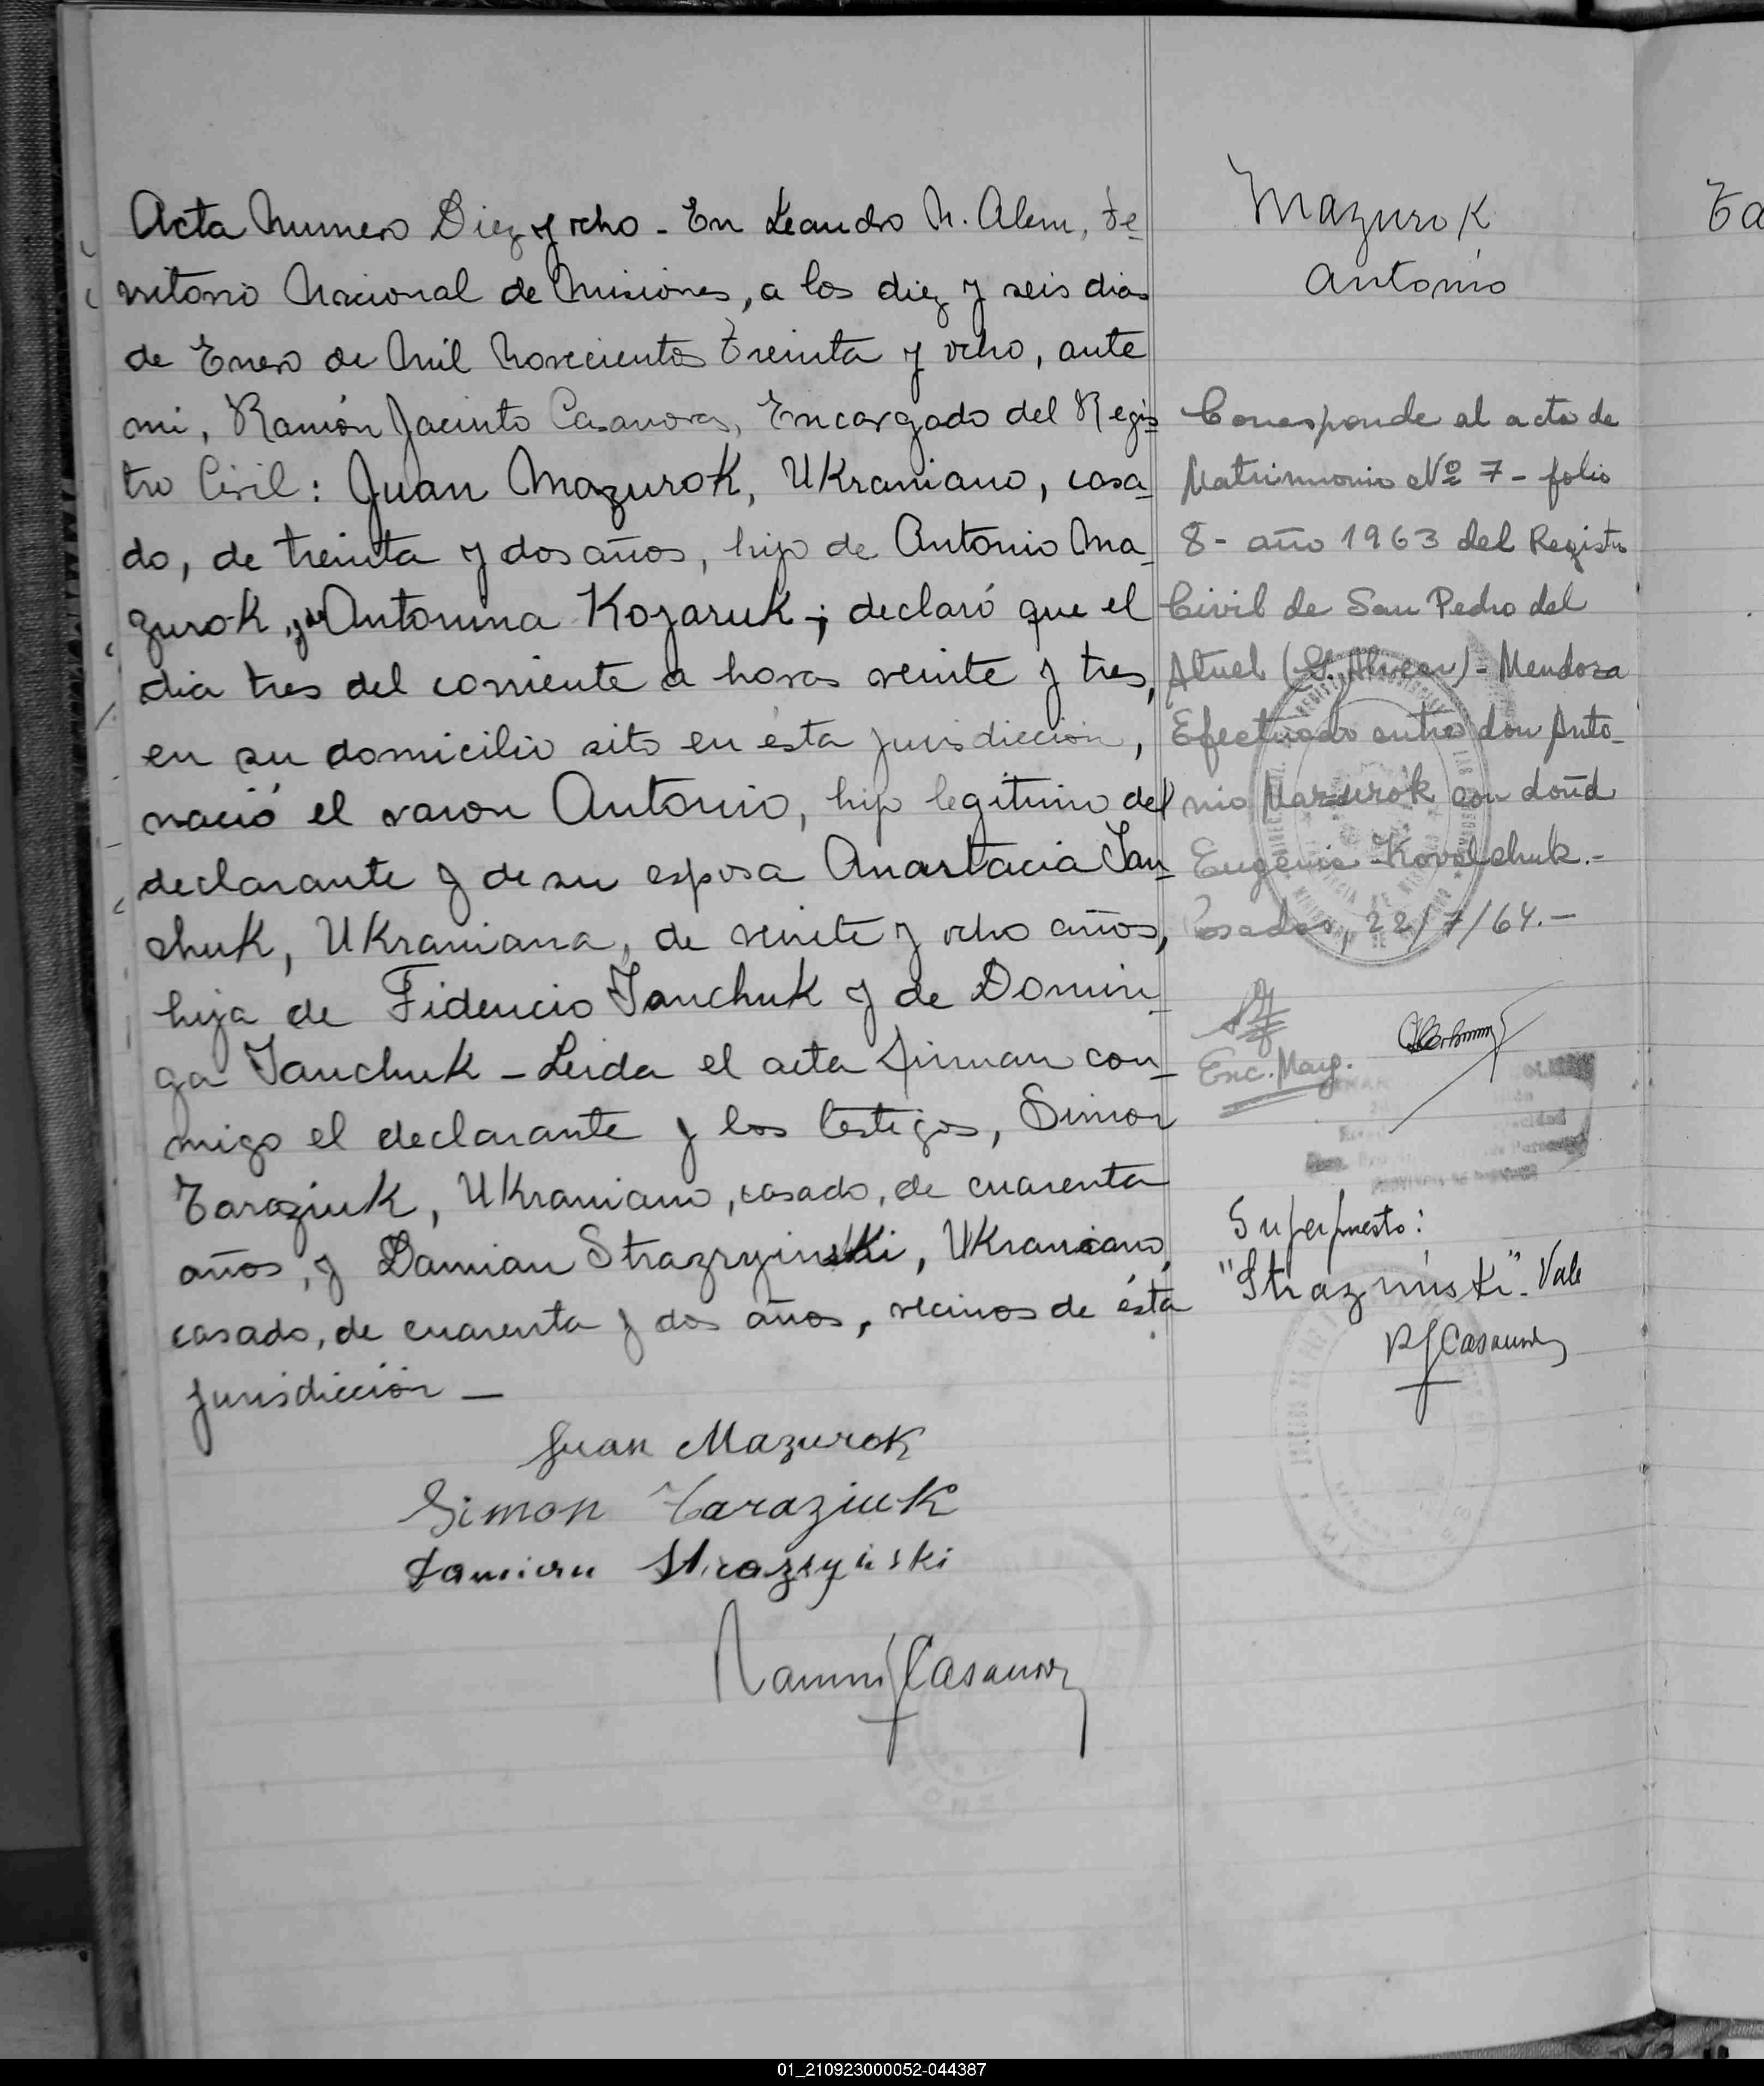 Acta Numero Diez y ocho - En Leandro N. Alem, Te-
rritorio Nacional de Misiones, a los diez y seis dias
de Enero de Mil Novecientos treinta y ocho, ante
mi, Ramón Jacinto Casanova, Encargado del Regis-
tro Civil: Juan Mazurok, Ukraniano, casa-
do, de treinta y dos años, hijo de Antonio Ma-
zurok, y de Antonina Kozaruk; declaró que el
dia tres del corriente a horas veinte y tres,
en su domicilio sito en ésta jurisdiccion,
nació el varon Antonio, hijo legitimo del
declarante y de su esposa Anastacia Ian-
chuk, Ukraniana, de veinte y ocho años,
hija de Fidencio Ianchuk y de Domin-
ga Ianchuk - Leida el acta firman con-
migo el declarante y los testigos, Simon
Taraziuk, Ukraniano, casado, de cuarenta
años, y Damian Ukraniano,
casado, de cuarenta y dos años, vecinos de ésta
jurisdiccion -
Juan Mazurok
Simon Taraziuk
Damian
Ramon J Casanova
Mazurok
Antonio
Corresponde al acta de
Matrimonio Nº 7 - folio
8 - año 1963 del Registro
Civil de San Pedro del
Atuel (G. Alvear) - Mendoza
Efectuado entre don Anto-
nio Mazurok con doña
Eugenia Kovalchuk.-
Posadas, 22/7/64.-
Enc. May.
Superpuesto:
Vale
R J Casanova
Ta
01_210923000052-044387